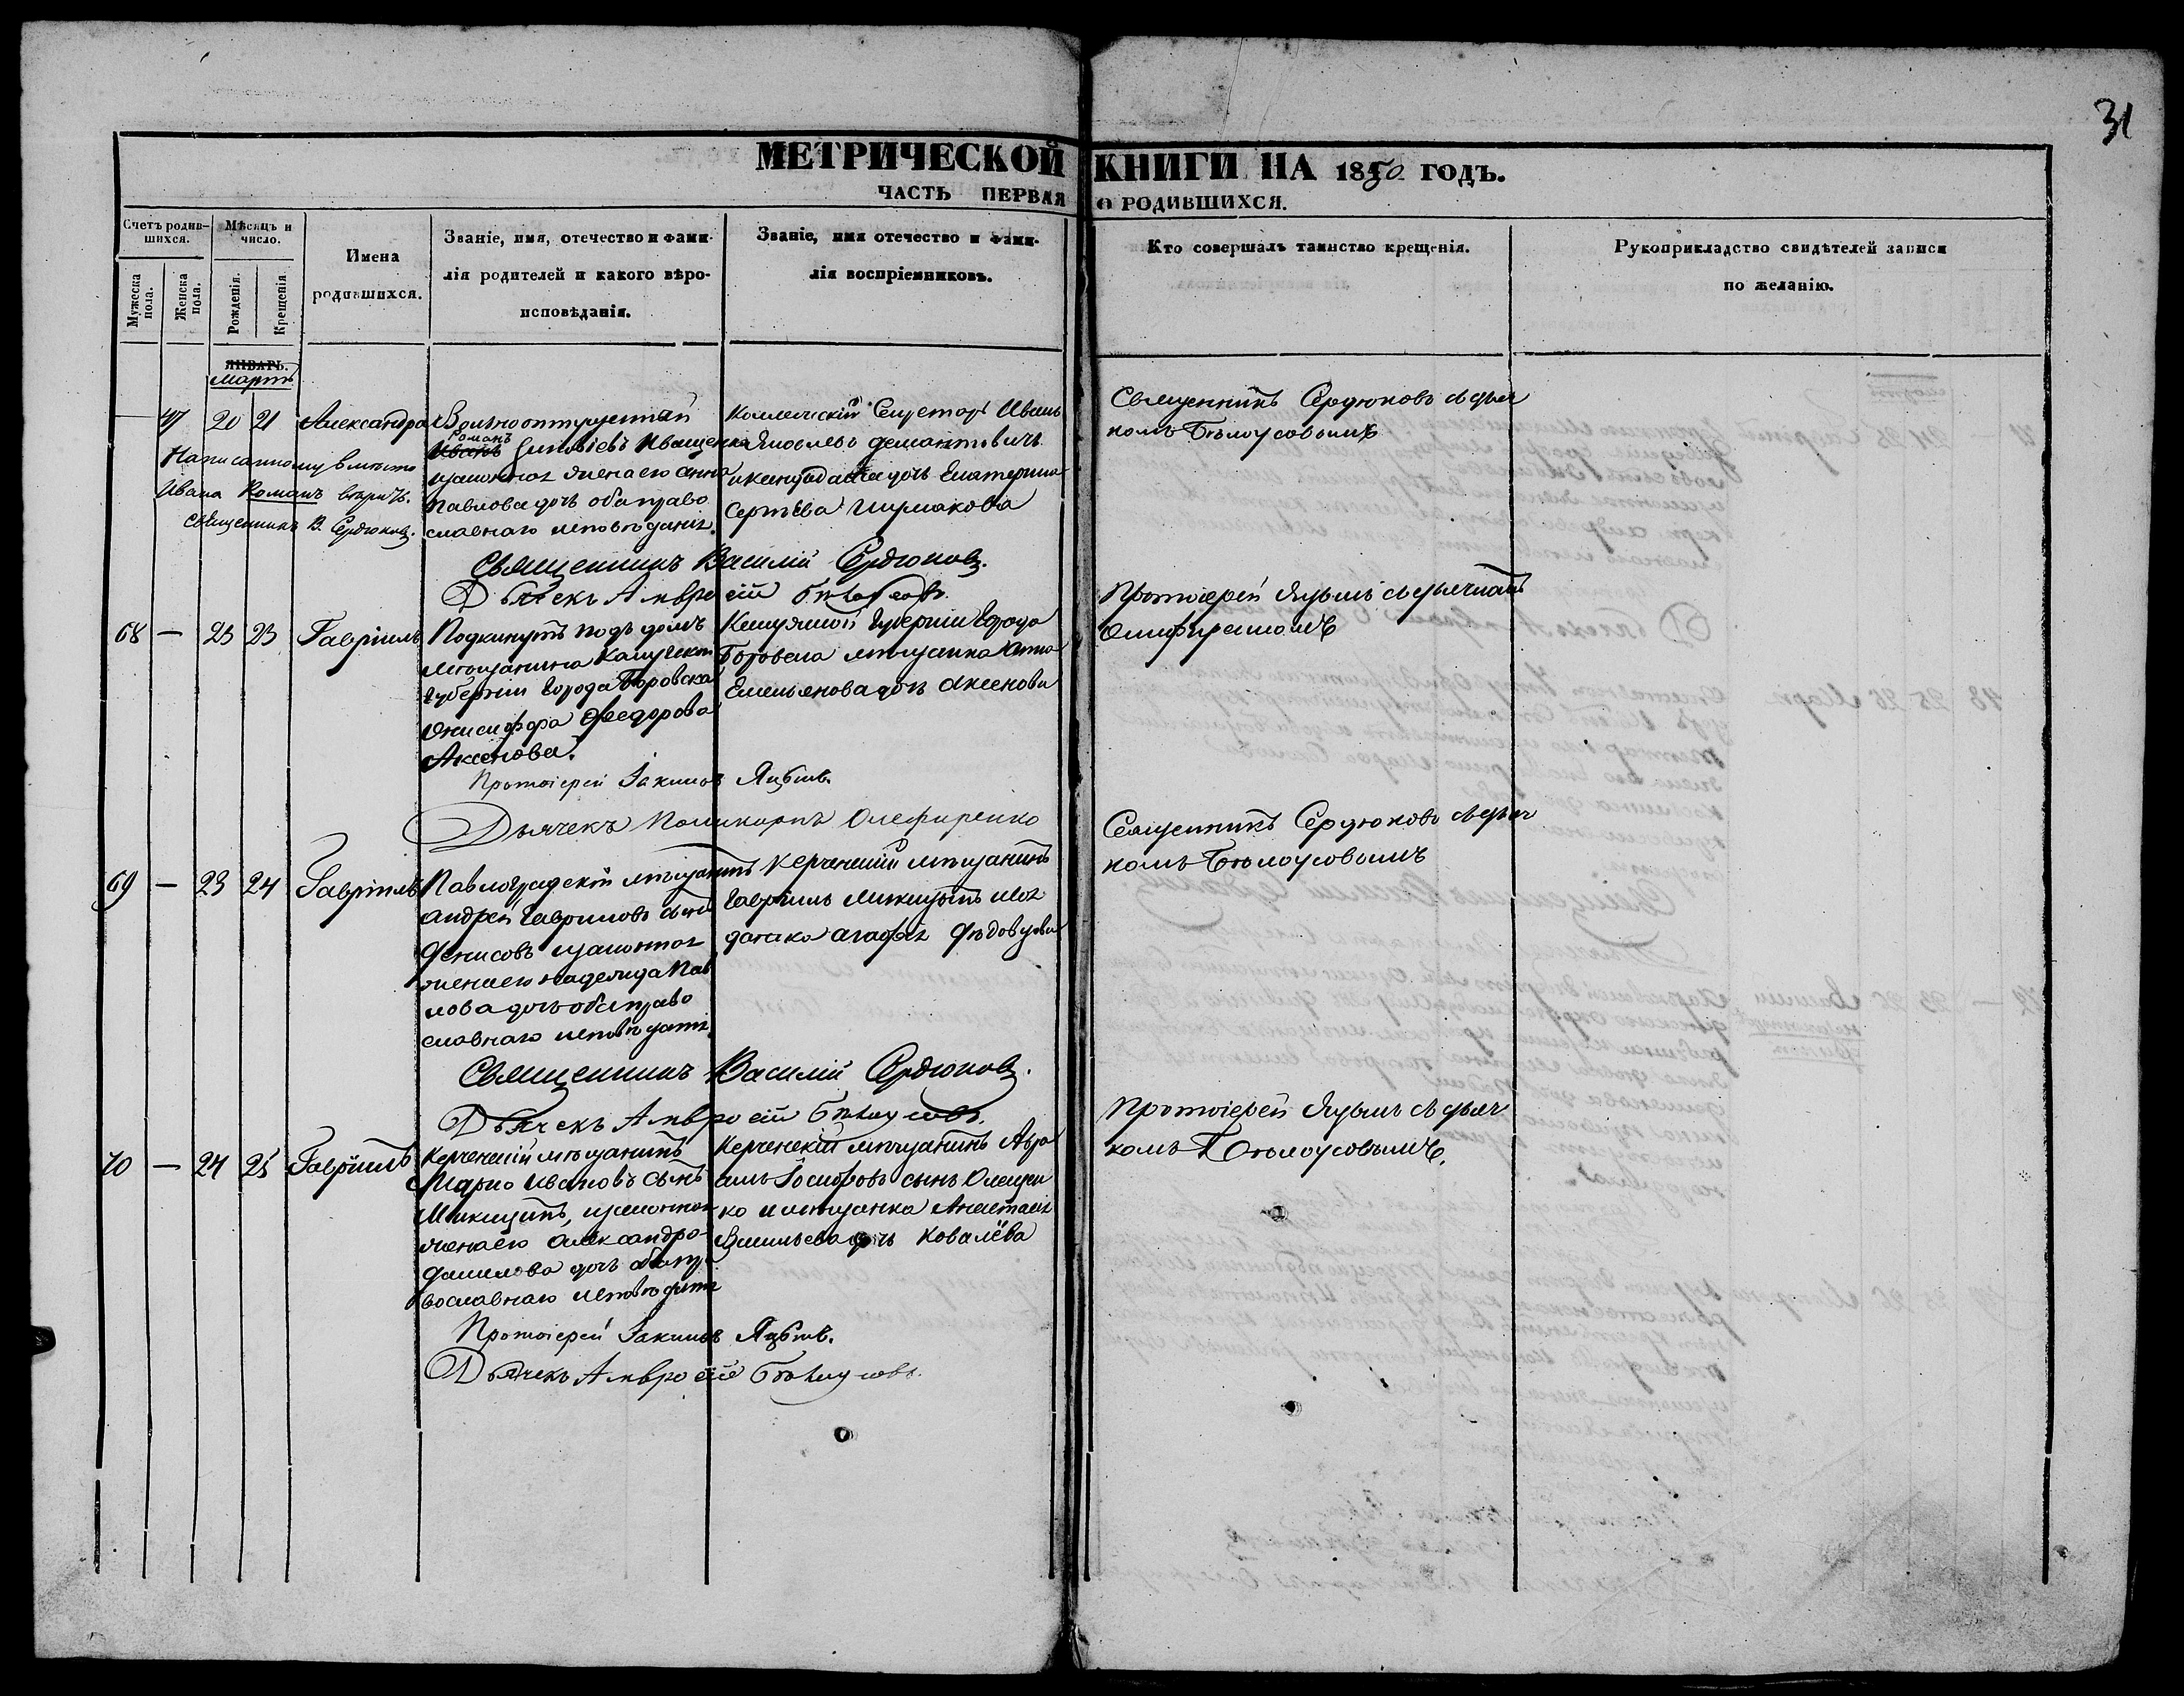 31
МЕТРИЧЕСКОЙ КНИГИ НА 1850 ГОДЪ.
ЧАСТЬ ПЕРВАЯ О РОДИВШИХСЯ.
Счетъ родив-
шихся.
Мѣсяцъ и
число.
Мужеска
пола.
Женска
пола.
Рожденія.
Крещенія
Имена
родившихся.
Званіе, имя, отечество и фами-
лія родителей и какого вѣро-
исповѣданія.
Званіе, имя отечество и фами-
лія воспріемниковъ.
Кто совершалъ таинство крещенія.
Рукоприкладство свидѣтелей записи
по желанію.
ЯНВАРЬ.
Мартъ
— 47 20 21 Александра
Написанному вмѣсто
Ивана Романъ вѣрить.
Священникъ В. Сердюковъ.
Вольноотпущенный
Романъ
Иванъ Зиновіевъ Иващенко
и законная жена его Анна
Павлова дочь оба право
славнаго исповѣданія.
Коллежскій Секретарь Иванъ
Яковлевъ
дочь Екатерина
Сергѣева Шумакова
Священникъ Сердюковъ съ дьяч
комъ Бѣлоусовымъ
Священникъ Василій Сердюковъ.
Дьячекъ Амвросій Бѣлоусовъ.
68 — 23 23 Гавріилъ
Подкинутъ подъ домъ
мѣщанина Калужской
Губерніи Города Боровска
Онисифора Федорова
Аксенова.
Калужской Губерніи Города
Боровска мѣщанка Анна
Емельянова дочь Аксенова
Протоіерей Яцынъ съ дьячкомъ
Олифиренкомъ
Протоіерей Іакимъ Яцынъ.
Дьячекъ Поликарпъ Олефиренко
69 — 23 24 Гавріилъ
Павлоградскій мѣщанинъ
Андрей Гавриловъ сынъ
Денисовъ и законная
жена его Надежда Пав
лова дочь оба право
славнаго исповѣданія.
Керченскій мѣщанинъ
Гавріилъ Микицинъ
Агафія
Священникъ Сердюковъ съ дьяч
комъ Бѣлоусовымъ
Священникъ Василій Сердюковъ.
Дьячекъ Амвросій Бѣлоусовъ.
70 — 24 25 Гавріилъ
Керченскій мѣщанинъ
Марко Ивановъ сынъ
Микицинъ, и законная
жена его Александра
Данилова дочь оба пра
вославнаго исповѣданія
Керченскій мѣщанинъ Авра
амъ Іосифовъ сынъ
ко и мѣщанка Анастасія
Васильева дочь Ковалёва
Протоіерей Яцынъ съ дьяч
комъ Бѣлоусовымъ.
Протоіерей Іакимъ Яцынъ.
Дьячекъ Амвросій Бѣлоусовъ.